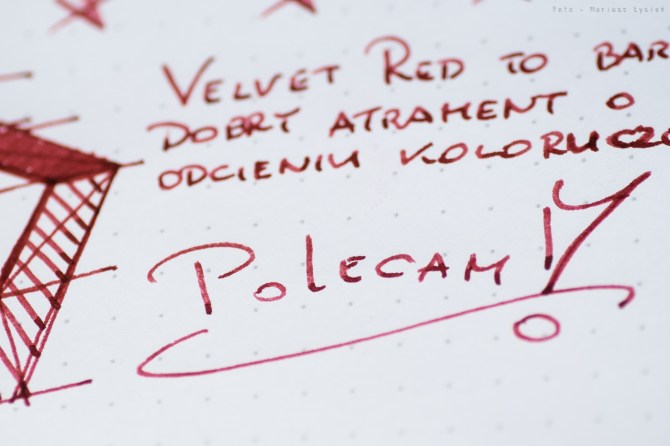 Foto - Mariusz Łysiek
VELVET RED TO BAR
DOBRY ATRAMENT O
ODCIENIU KOLORU CZE
POLECAM!